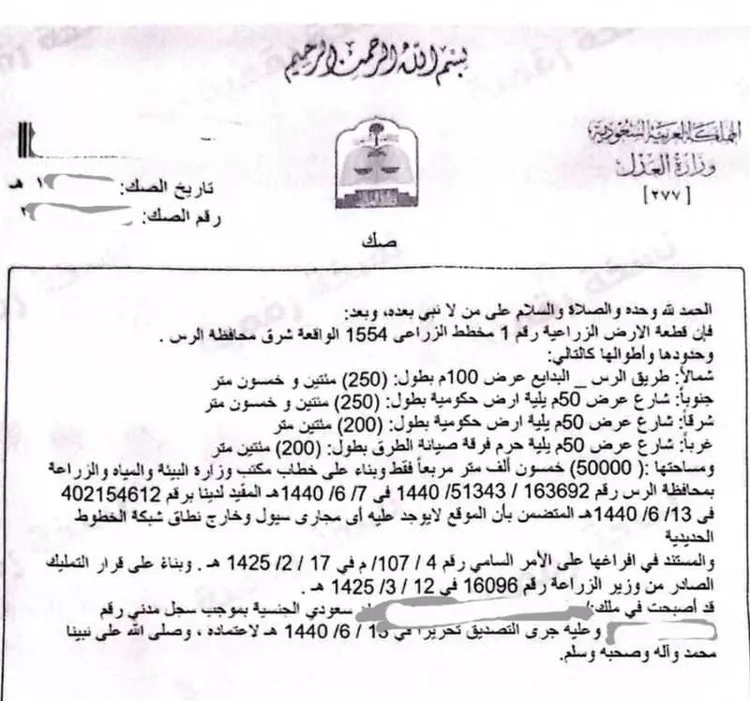 بسم الله الرحمن الرحيم
المملكة العربية السعودية
وزارة العدل
[٢٧٧]
تاريخ الصك: ١ هـ
رقم الصك: ٢
صك
الحمد لله وحده والصلاة والسلام على من لا نبي بعده، وبعد:
فإن قطعة الارض الزراعية رقم 1 مخطط الزراعى 1554 الواقعة شرق محافظة الرس .
وحدودها وأطوالها كالتالي:
شمالاً: طريق الرس _ البدايع عرض 100م بطول: (250) مئتين و خمسون متر
جنوباً: شارع عرض 50م يلية ارض حكومية بطول: (250) مئتين و خمسون متر
شرقاً: شارع عرض 50م يلية ارض حكومية بطول: (200) مئتين متر
غرباً: شارع عرض 50م يلية حرم فرقة صيانة الطرق بطول: (200) مئتين متر
ومساحتها :( 50000) خمسون ألف متر مربعاً فقط وبناء على خطاب مكتب وزارة البيئة والمياه والزراعة
بمحافظة الرس رقم 163692 / 51343/ 1440 في 7/ 6/ 1440هـ المقيد لدينا برقم 402154612
فى 13/ 6/ 1440هـ المتضمن بأن الموقع لايوجد عليه أى مجارى سيول وخارج نطاق شبكة الخطوط
الحديدية
والمستند في افراغها على الأمر السامي رقم 4 / 107/ م في 17 / 2/ 1425 هـ . وبناءً على قرار التمليك
الصادر من وزير الزراعة رقم 16096 في 12 / 3/ 1425 هـ .
قد أصبحت في ملك: سعودي الجنسية بموجب سجل مدني رقم
وعليه جرى التصديق تحريراً في 13 / 6/ 1440 هـ لاعتماده ، وصلى الله على نبينا
محمد وآله وصحبه وسلم.